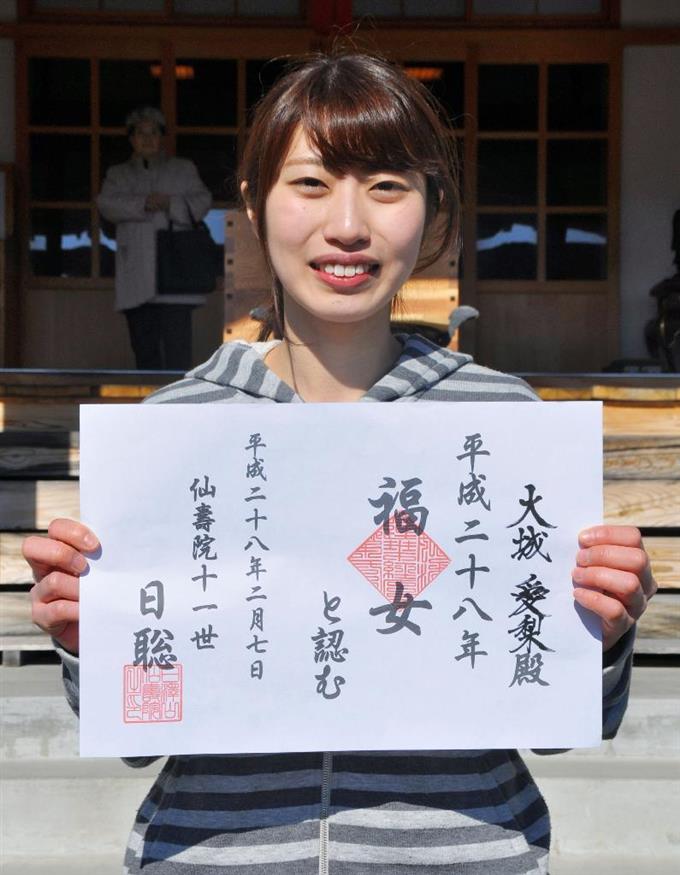 大城 愛梨殿
平成二十八年
福女
と認む
平成二十八年二月七日
仙壽院十一世
日聡